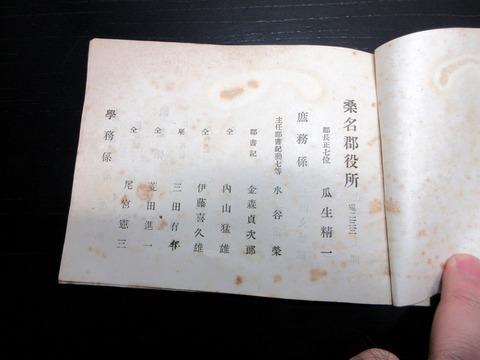 桑名郡役所 電二三三
郡長正七位 瓜生精一
庶務係
主任郡書記勲七等 水谷 榮
郡書記 金森貞次郎
仝 内山猛雄
仝 伊藤喜久雄
雇 三田有年
仝 菱田進一
仝 尾宮憲三
學務係